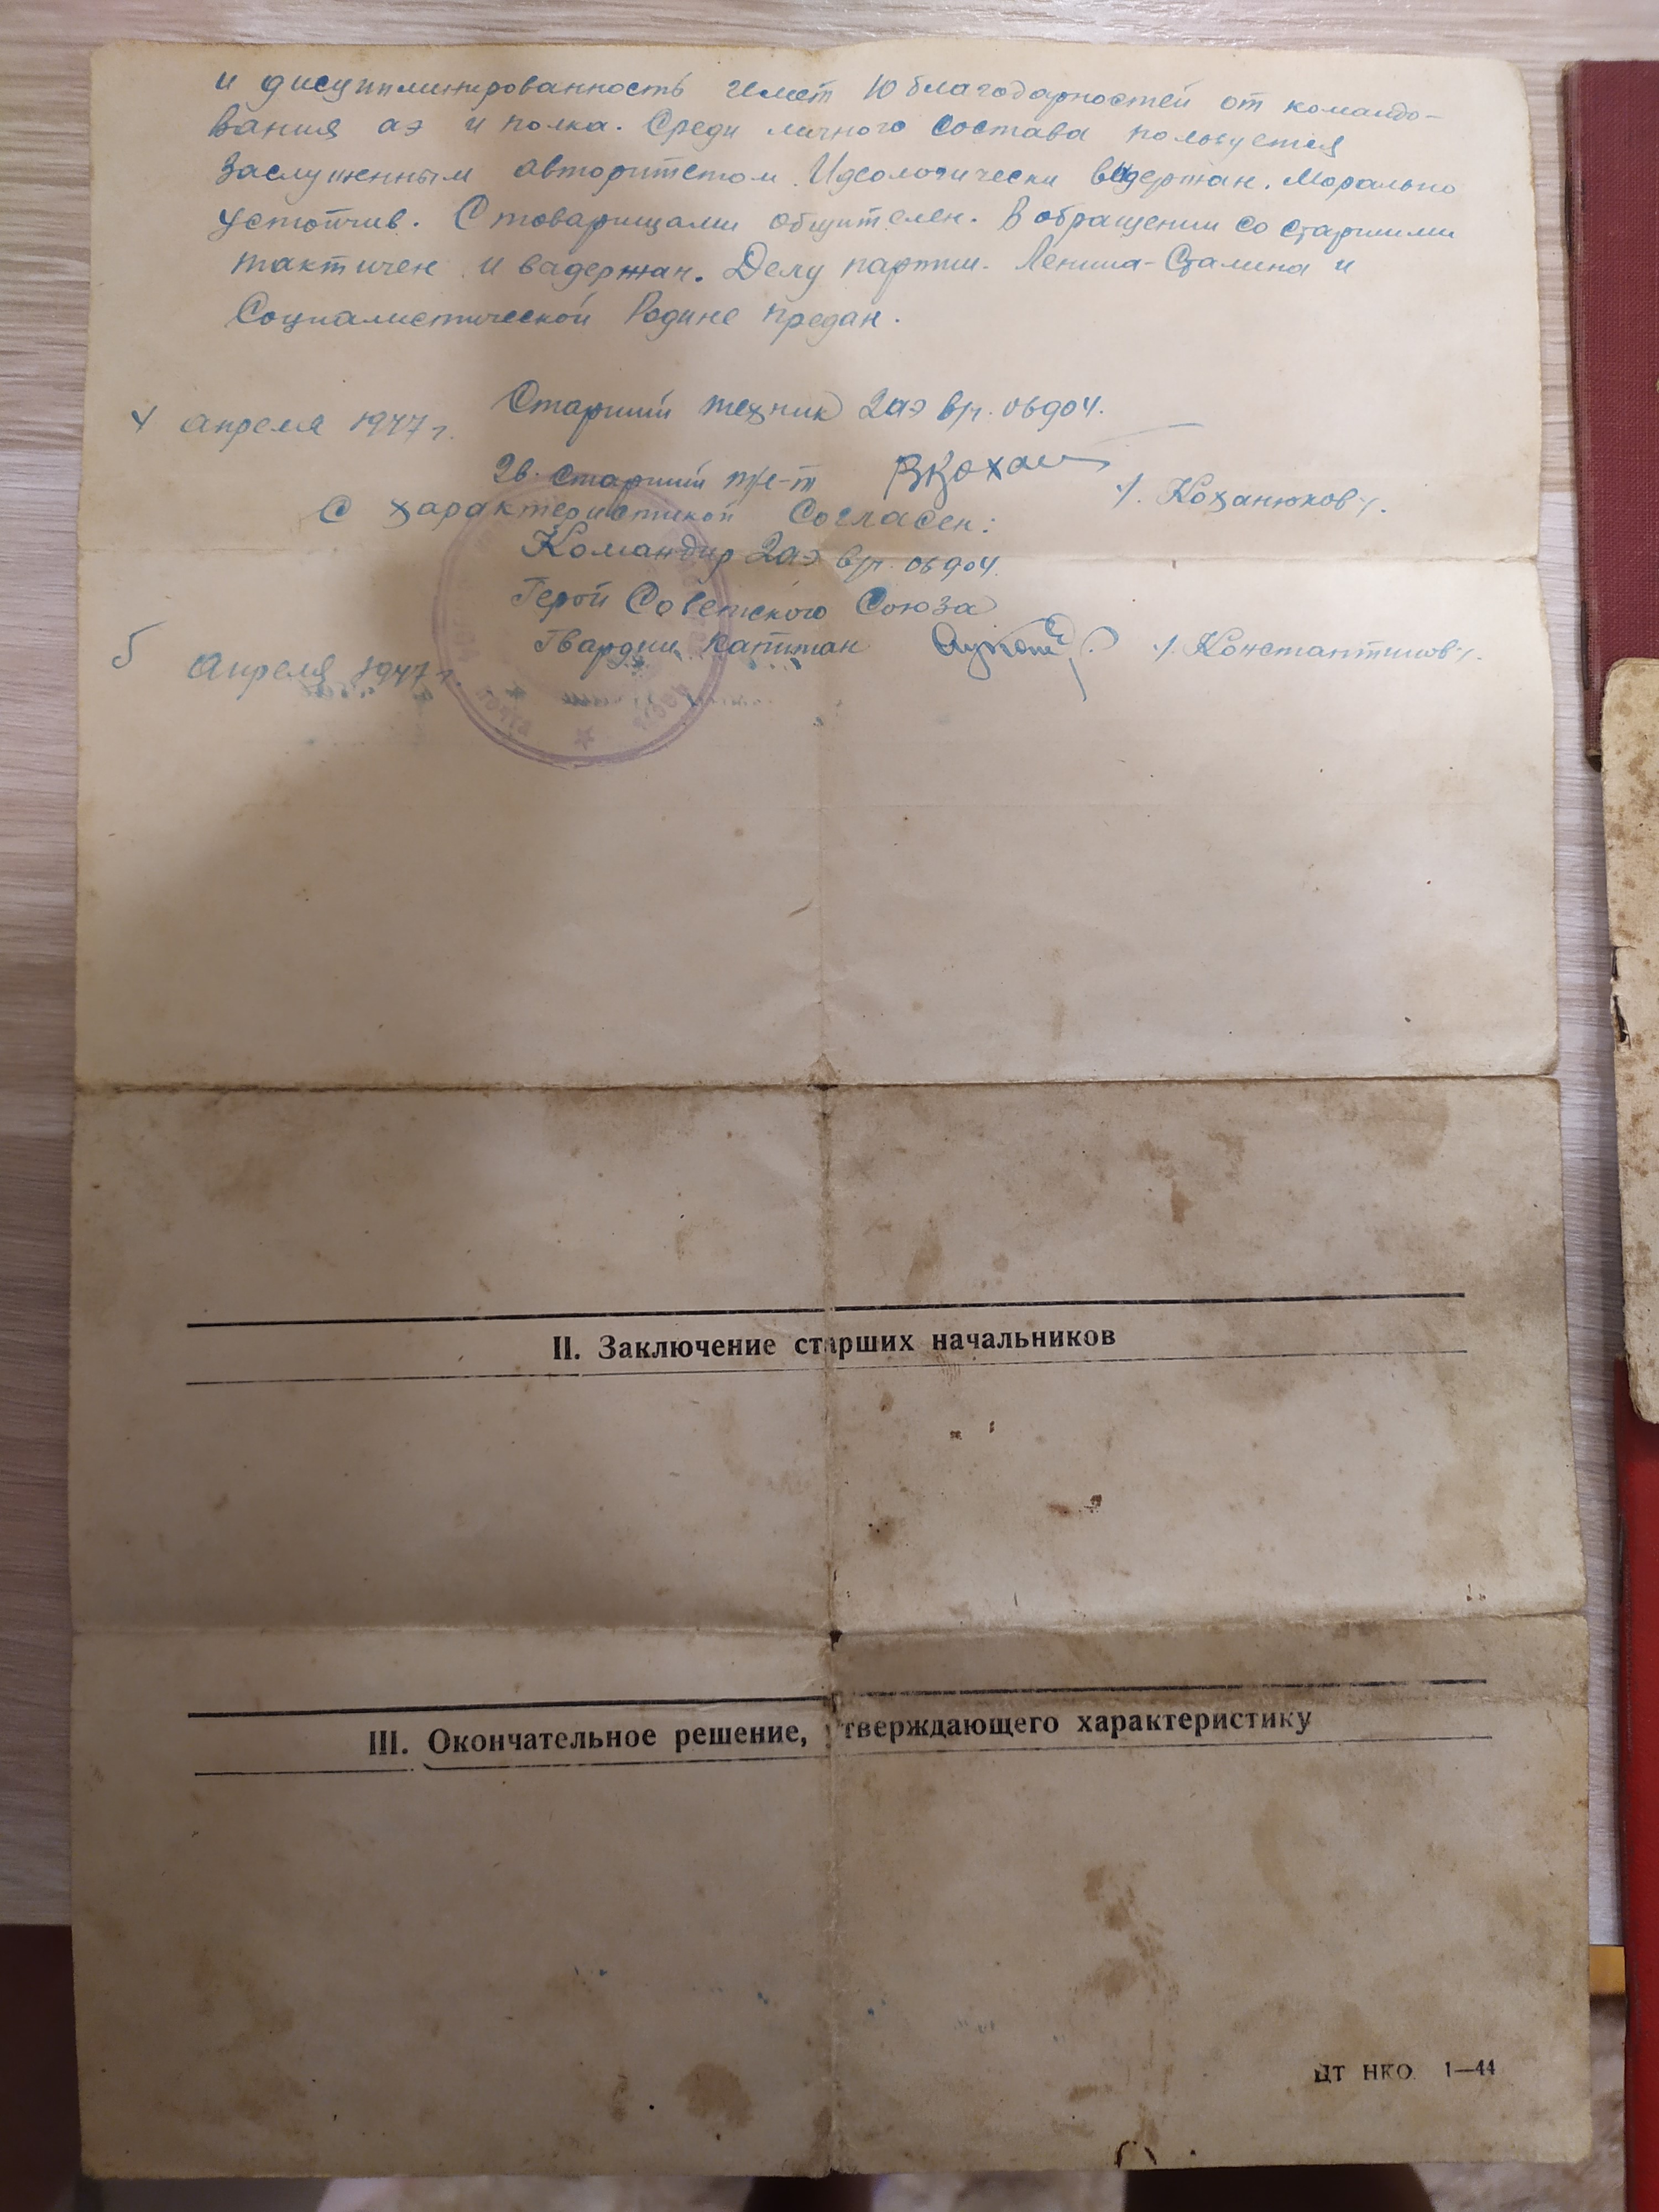 и дисциплинированность имеет 10 благодарностей от командо-
вания аэ и полка. Среди личного состава пользуется
заслуженным авторитетом. Идеологически выдержан. Морально
устойчив. С товарищами общителен. В обращении со старшими
тактичен и вадержан. Делу партии Ленина-Сталина и
Социалистической Родине предан.
Старший техник 2 аэ в/ч. 06904.
4 апреля 1947 г.
Гв. старший т/л-т /. Коханюков /.
С характеристикой согласен:
Командир 2 аэ в/ч. 06904.
Герой Советского Союза
Гвардии капитан /. Константинов /.
5 Апреля 1947 г.
II. Заключение старших начальников
III. Окончательное решение, утверждающего характеристику
ЦТ НКО. 1—44